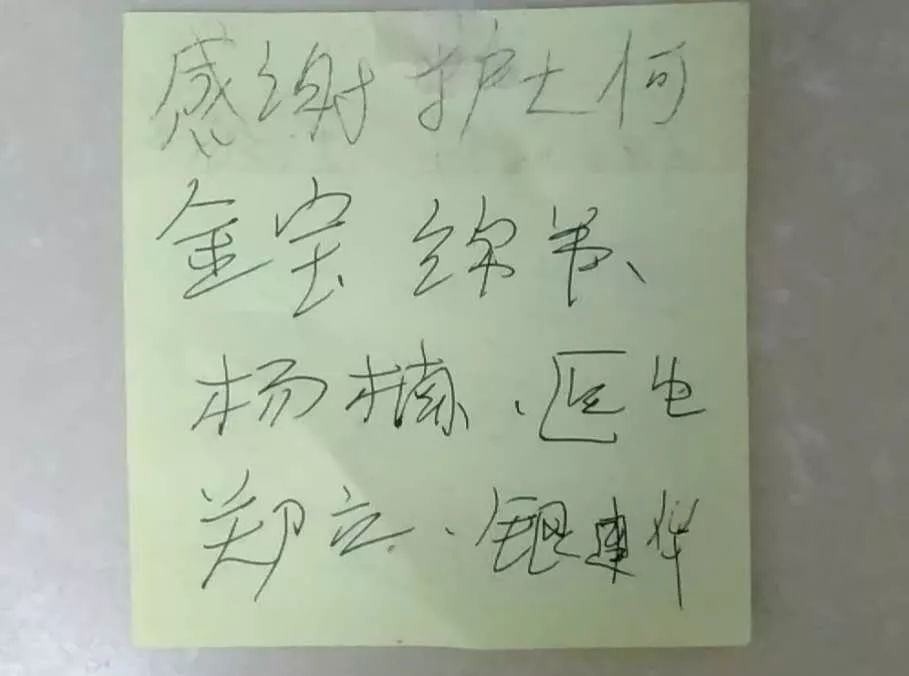 感谢 护士何
金宝 
杨楠、医生
郑立、银建华